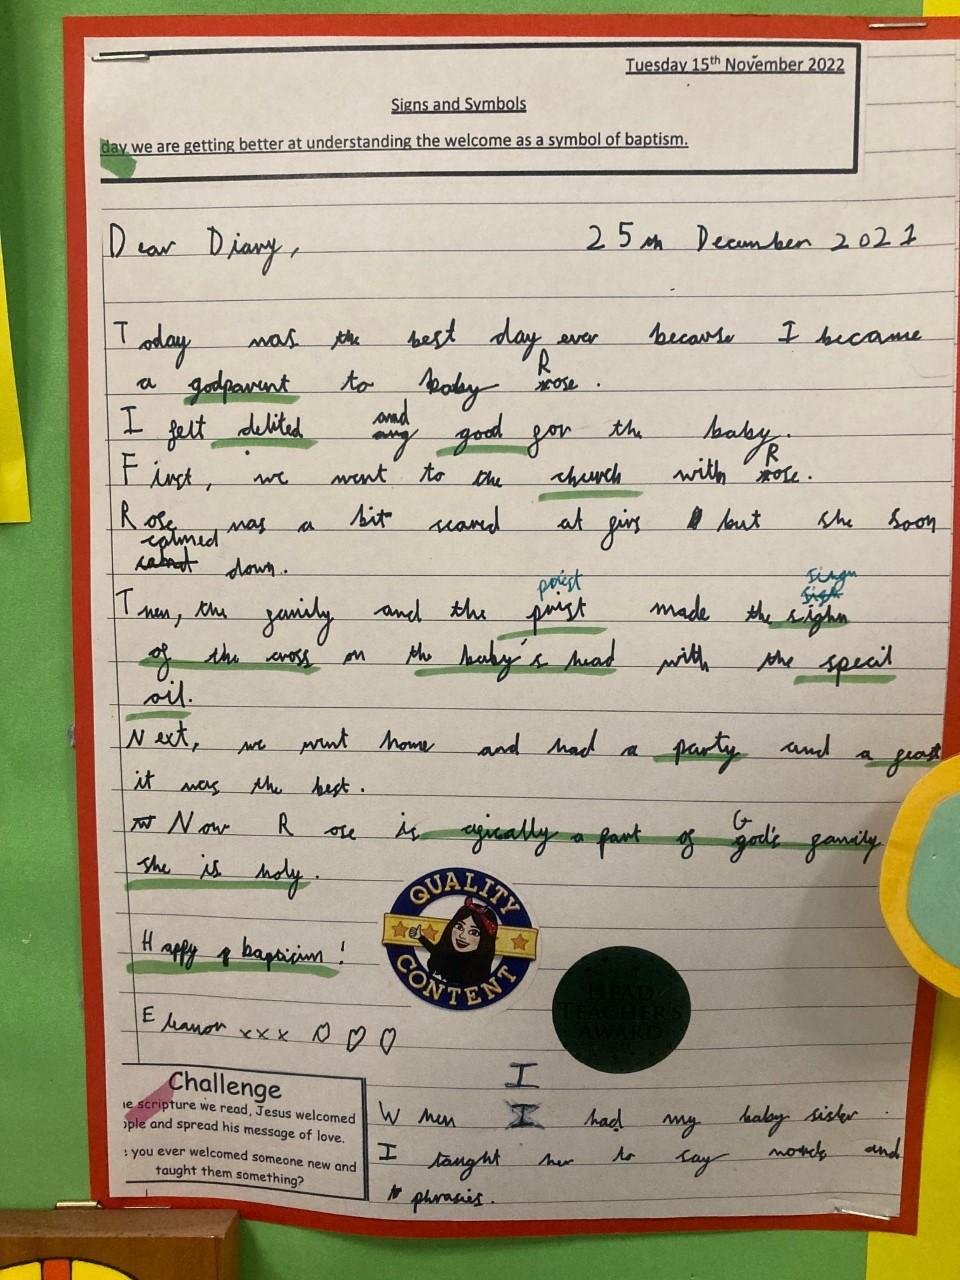 Tuesday 15th November 2022
Signs and Symbols
day we are getting better at understanding the welcome as a symbol of baptism.
Dear Diary, 25th Decumber 2021
Today was the best day ever because I became
a godparent to baby Rose.
I felt delited and good for the baby.
First, we went to the church with Rose.
Rose was a bit scared at firs but she soon
calmed down.
priest singn
Then, the family and the prist made the sighn
of the cross on the baby's head with the specil
oil.
Next, we went home and had a party and a feast
it was the best.
Now Rose is agically a part of God's family
she is holy.
QUALITY
CONTENT
Happy baptisim!
HEAD
TEACHER'S
AWARD
Eleanor xxx
Challenge
e scripture we read, Jesus welcomed
ople and spread his message of love.
you ever welcomed someone new and
taught them something?
I
When I had my baby sister.
I taught her to say words and
phrasies.